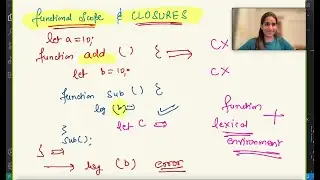 functional scope & CLOSURES
let a=10;
function add () {
let b=10;
function sub () {
log (b)
let c
}
sub();
}
log (b) error
CX
CX
function
lexical
environment